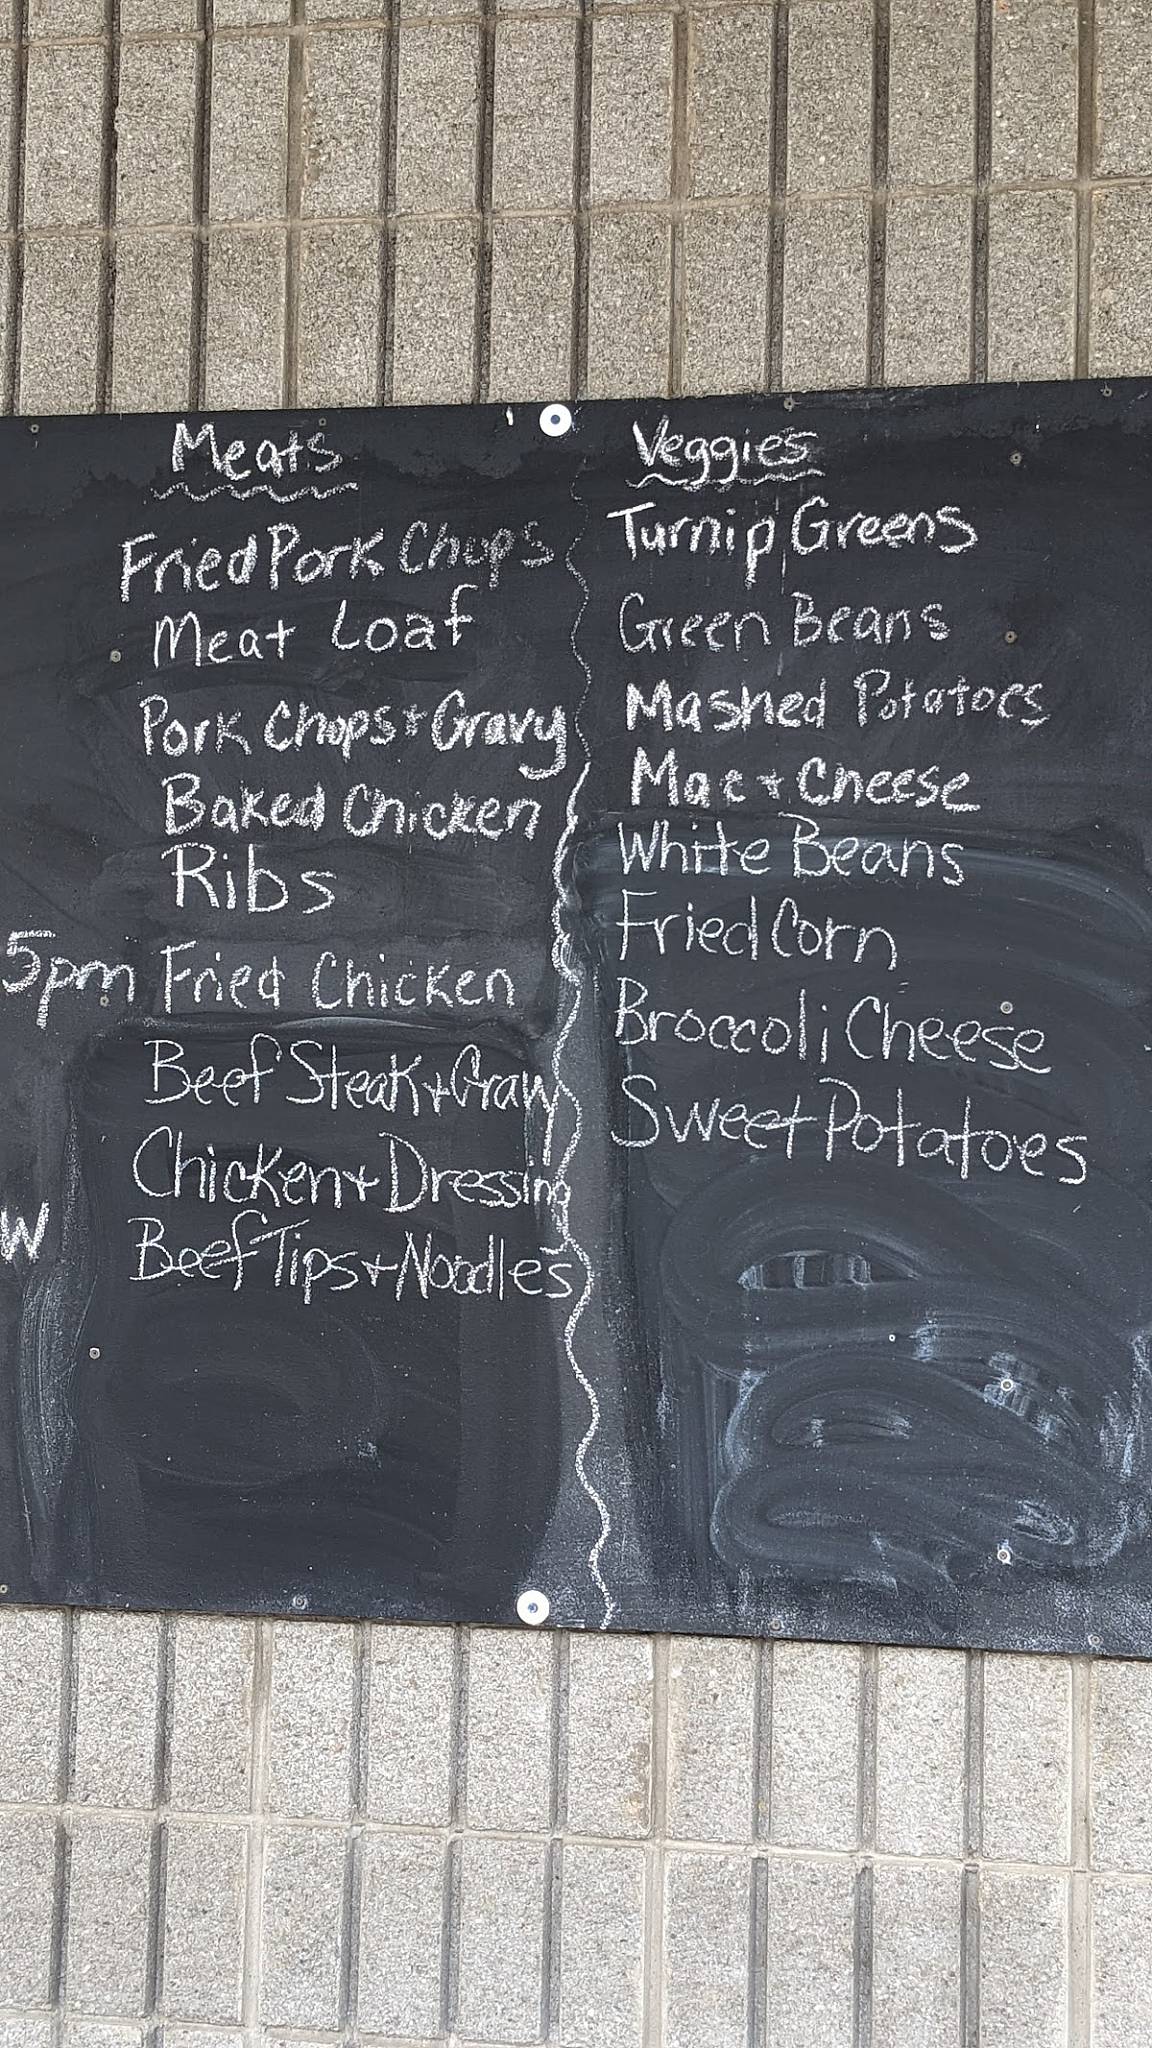 Meats
Fried Pork Chops
Meat Loaf
Pork Chops + Gravy
Baked Chicken
Ribs
5pm Fried Chicken
Beef Steak + Gravy
Chicken + Dressing
W
Beef Tips + Noodles
Veggies
Turnip Greens
Green Beans
Mashed Potatoes
Mac + Cheese
White Beans
Fried Corn
Broccoli Cheese
Sweet Potatoes